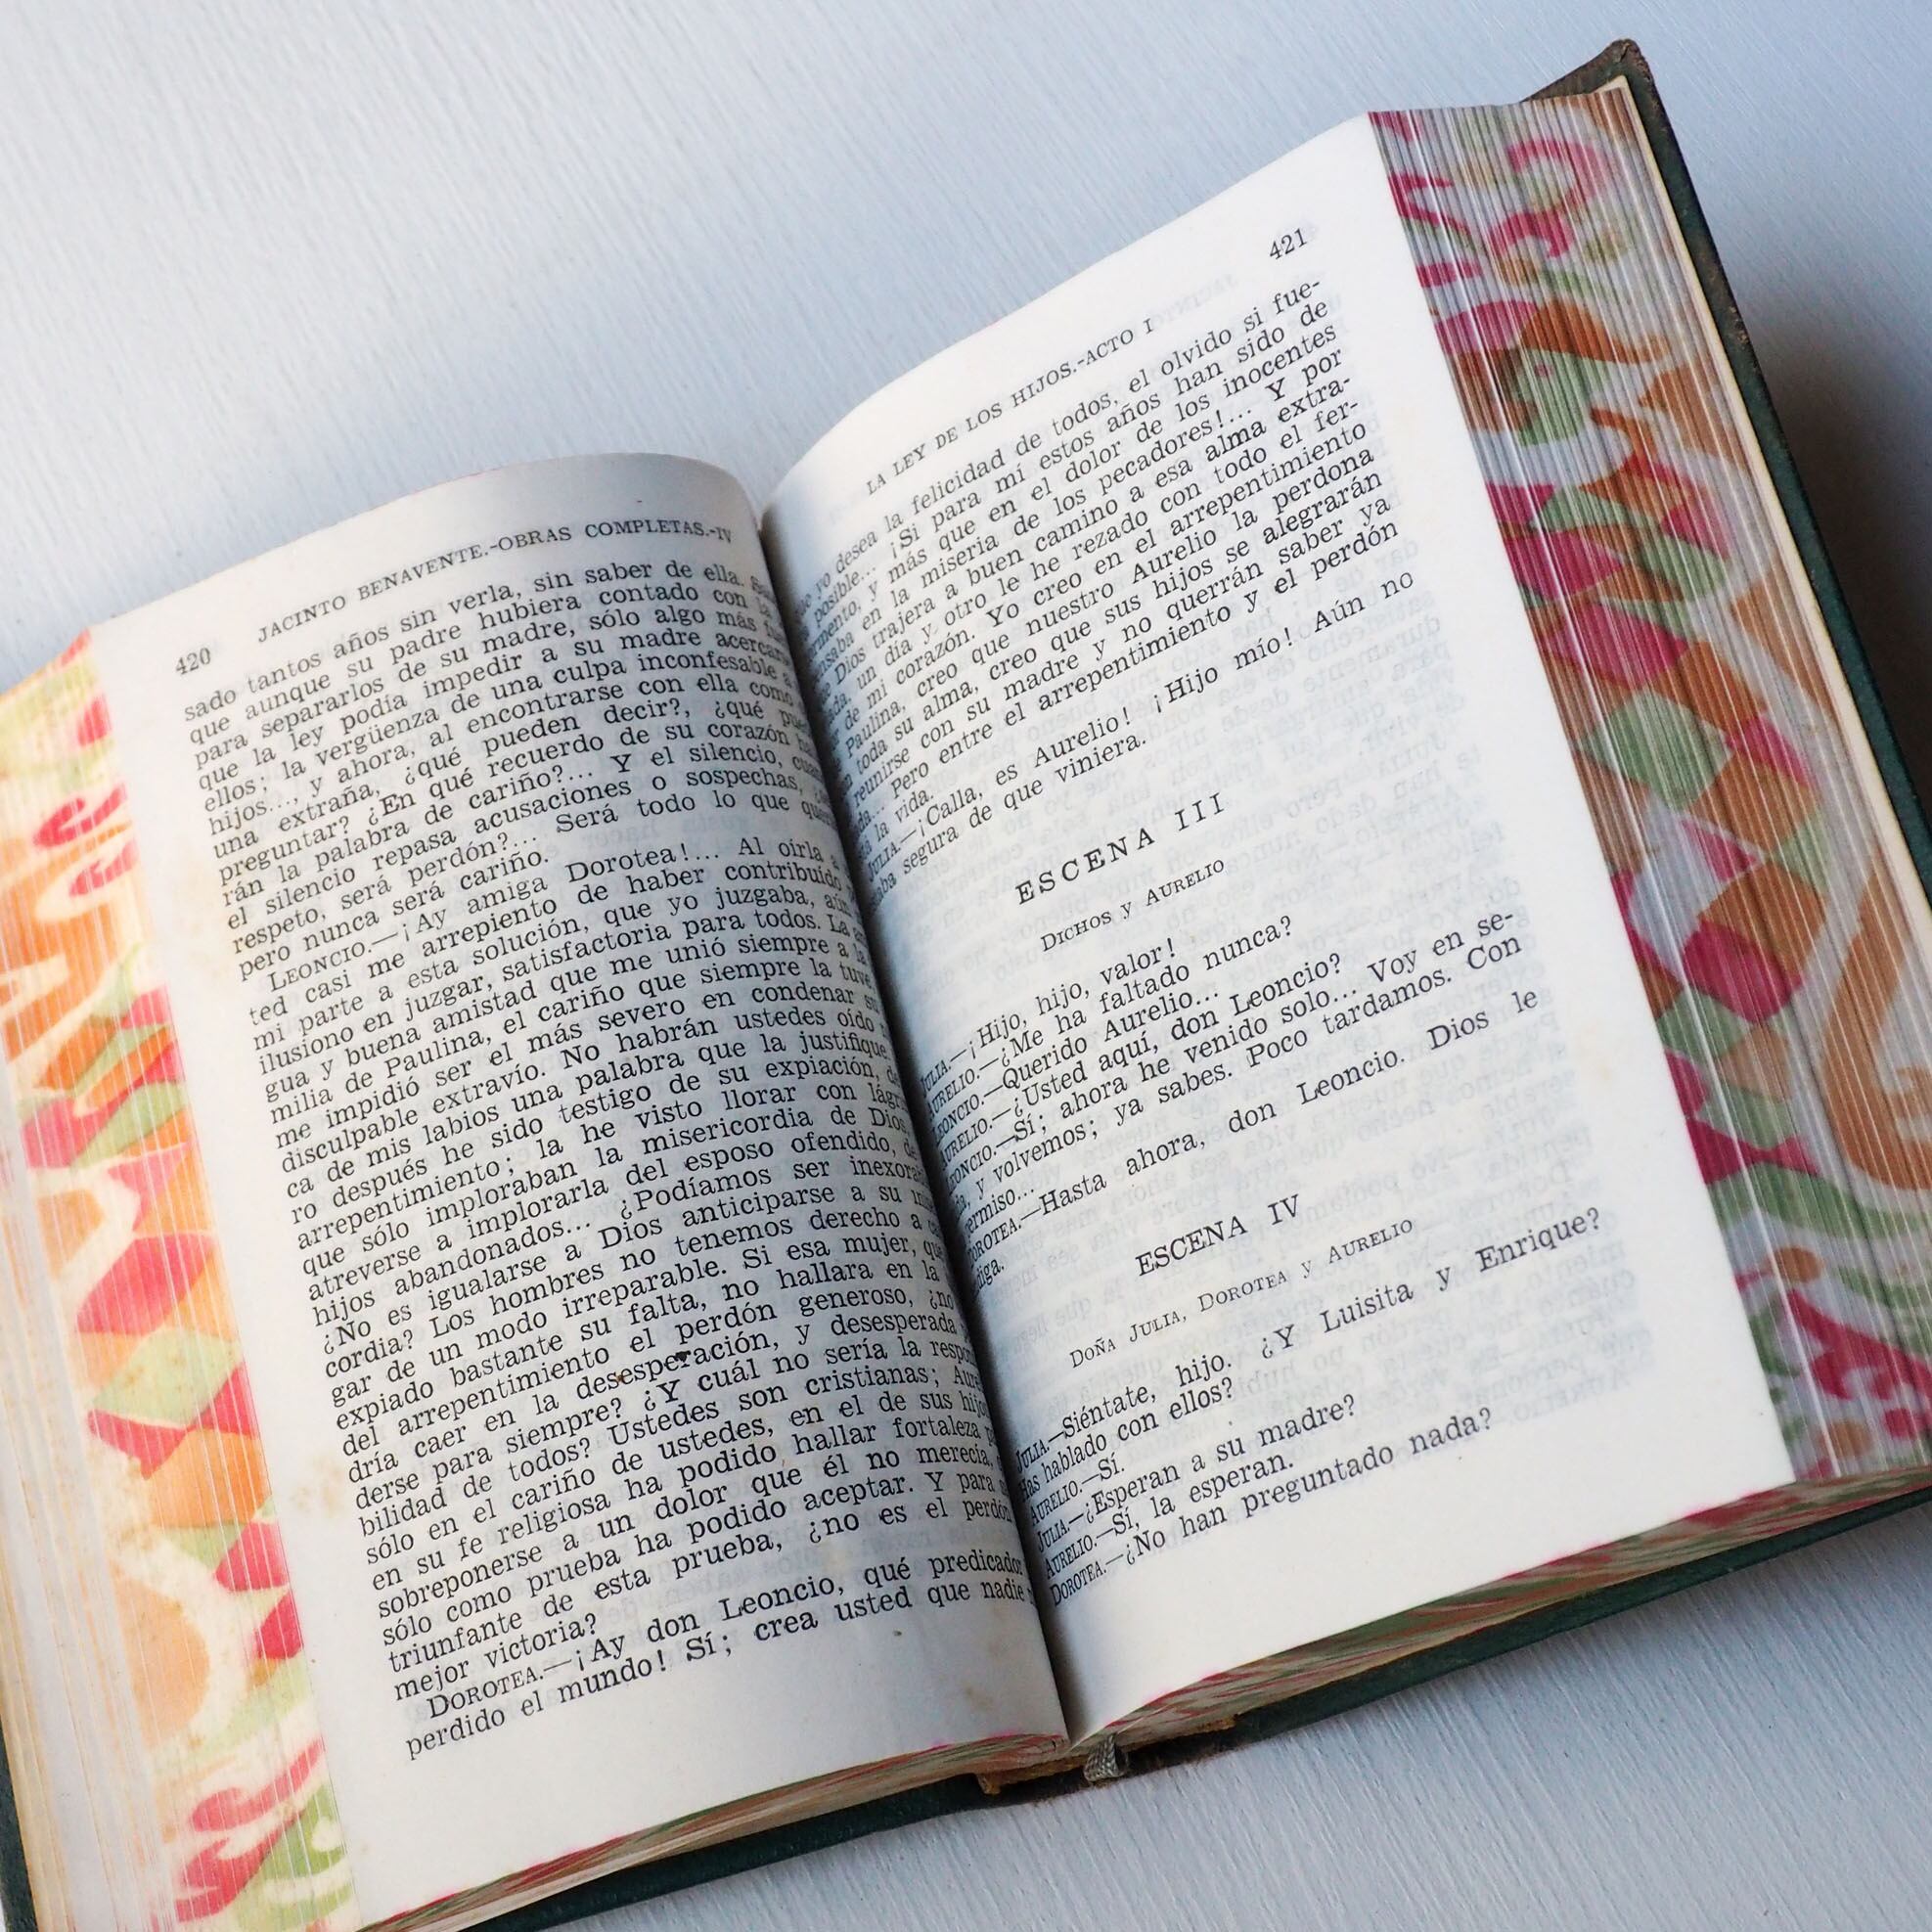 420 JACINTO BENAVENTE.-OBRAS COMPLETAS.-IV
sado tantos años sin verla, sin saber de ella.
que aunque su padre hubiera contado con la
para separarlos de su madre, sólo algo más
que la ley podía impedir a su madre
ellos; la vergüenza de una culpa inconfesable a
hijos..., y ahora, al encontrarse con ella como
una extraña, ¿qué pueden decir?, ¿qué
preguntar? ¿En qué recuerdo de su corazón
rán la palabra de cariño?... Y el silencio,
el silencio repasa acusaciones o sospechas,
respeto, será perdón?... Será todo lo que
pero nunca será cariño.
LEONCIO.—¡Ay amiga Dorotea!... Al oírla a
ted casi me arrepiento de haber contribuido
mi parte a esta solución, que yo juzgaba, aún
ilusiono en juzgar, satisfactoria para todos. La
gua y buena amistad que me unió siempre a la
milia de Paulina, el cariño que siempre la tuve
me impidió ser el más severo en condenar
disculpable extravío. No habrán ustedes oído
ca de mis labios una palabra que la justifique,
ro después he sido testigo de su expiación, de
arrepentimiento; la he visto llorar con
que sólo imploraban la misericordia de Dios,
atreverse a implorarla del esposo ofendido, de
hijos abandonados... ¿Podíamos ser
¿No es igualarse a Dios anticiparse a su
cordia? Los hombres no tenemos derecho a
gar de un modo irreparable. Si esa mujer, que
expiado bastante su falta, no hallara en la
del arrepentimiento el perdón generoso, ¿no
dría caer en la desesperación, y desesperada
derse para siempre? ¿Y cuál no sería la
bilidad de todos? Ustedes son cristianas;
sólo en el cariño de ustedes, en el de sus
en su fe religiosa ha podido hallar fortaleza
sobreponerse a un dolor que él no merecía,
sólo como prueba ha podido aceptar. Y para
triunfante de esta prueba, ¿no es el perdón
mejor victoria?
DOROTEA.—¡Ay don Leoncio, qué predicador
perdido el mundo! Sí; crea usted que nadie
LA LEY DE LOS HIJOS.-ACTO I 421
que yo desea la felicidad de todos, el olvido si fue-
posible... ¡Si para mí estos años han sido de
y más que en el dolor de los inocentes
en la miseria de los pecadores!... Y por
que Dios trajera a buen camino a esa alma extra-
un día y otro le he rezado con todo el fer-
de mi corazón. Yo creo en el arrepentimiento
Paulina, creo que nuestro Aurelio la perdona
toda su alma, creo que sus hijos se alegrarán
reunirse con su madre y no querrán saber ya
Pero entre el arrepentimiento y el perdón
la vida.
JULIA.—¡Calla, es Aurelio! ¡Hijo mío! Aún no
segura de que viniera.
ESCENA III
DICHOS y AURELIO
JULIA.—¡Hijo, hijo, valor!
AURELIO.—¿Me ha faltado nunca?
LEONCIO.—Querido Aurelio...
AURELIO.—¿Usted aquí, don Leoncio?
LEONCIO.—Sí; ahora he venido solo... Voy en se-
y volvemos; ya sabes. Poco tardamos. Con
permiso...
DOROTEA.—Hasta ahora, don Leoncio. Dios le
diga.
ESCENA IV
DOÑA JULIA, DOROTEA y AURELIO
JULIA.—Siéntate, hijo. ¿Y Luisita y Enrique?
Has hablado con ellos?
AURELIO.—Sí.
JULIA.—¿Esperan a su madre?
AURELIO.—Sí, la esperan.
DOROTEA.—¿No han preguntado nada?